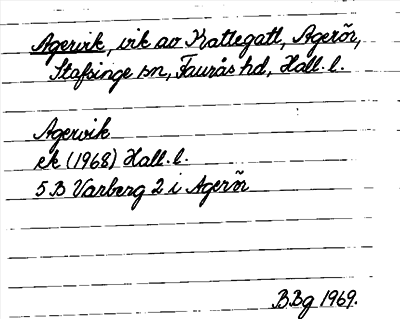 Agervik, vik av Kattegatt, Agerör,
Stafsinge sn, Faurås hd, Hall. l.
Agervik
ek (1968) Hall. l.
5 B Varberg 2 i Agerör
BBg 1969.